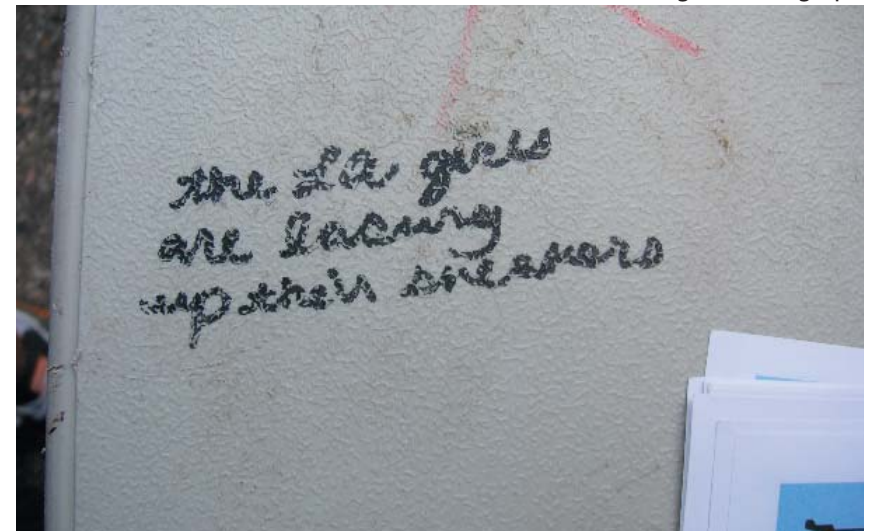 the LA girls
are lacing
up their sneakers